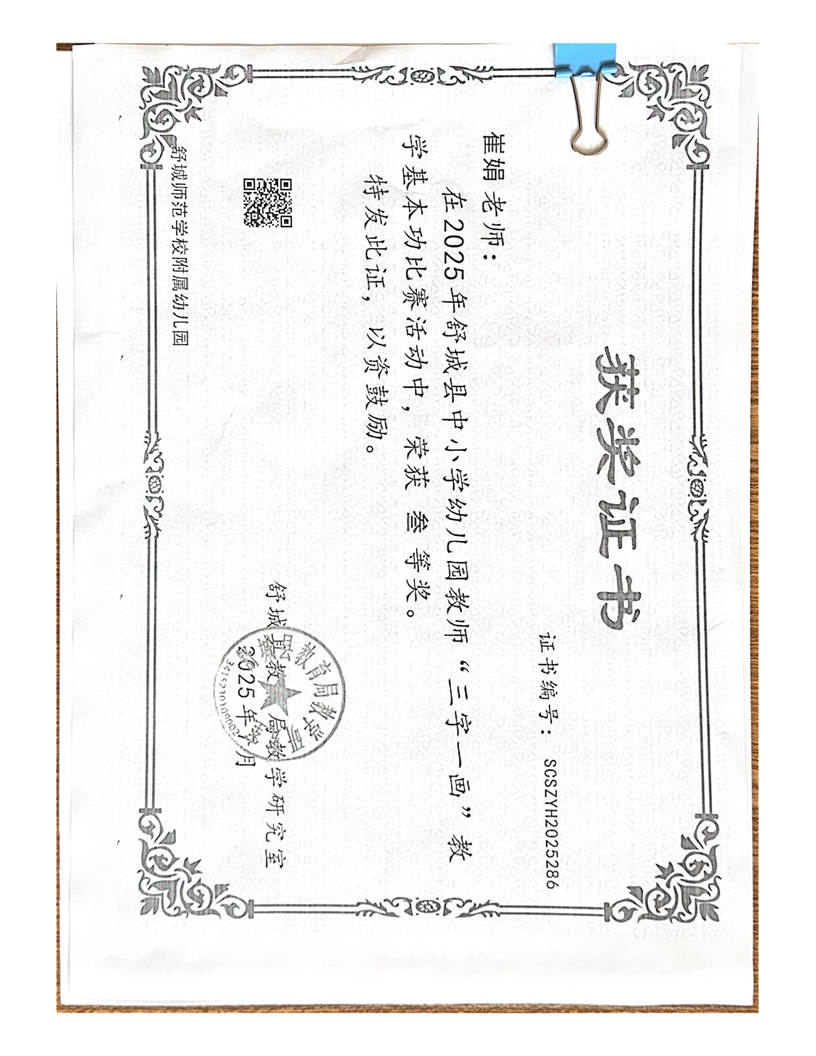 获奖证书
证书编号：SCSZYH2025286
崔娟老师：
在2025年舒城县中小学幼儿园教师“三字一画”教
学基本功比赛活动中，荣获 叁 等奖。
特发此证，以资鼓励。
舒城县教 局教学研究室
2025年 月
舒城师范学校附属幼儿园